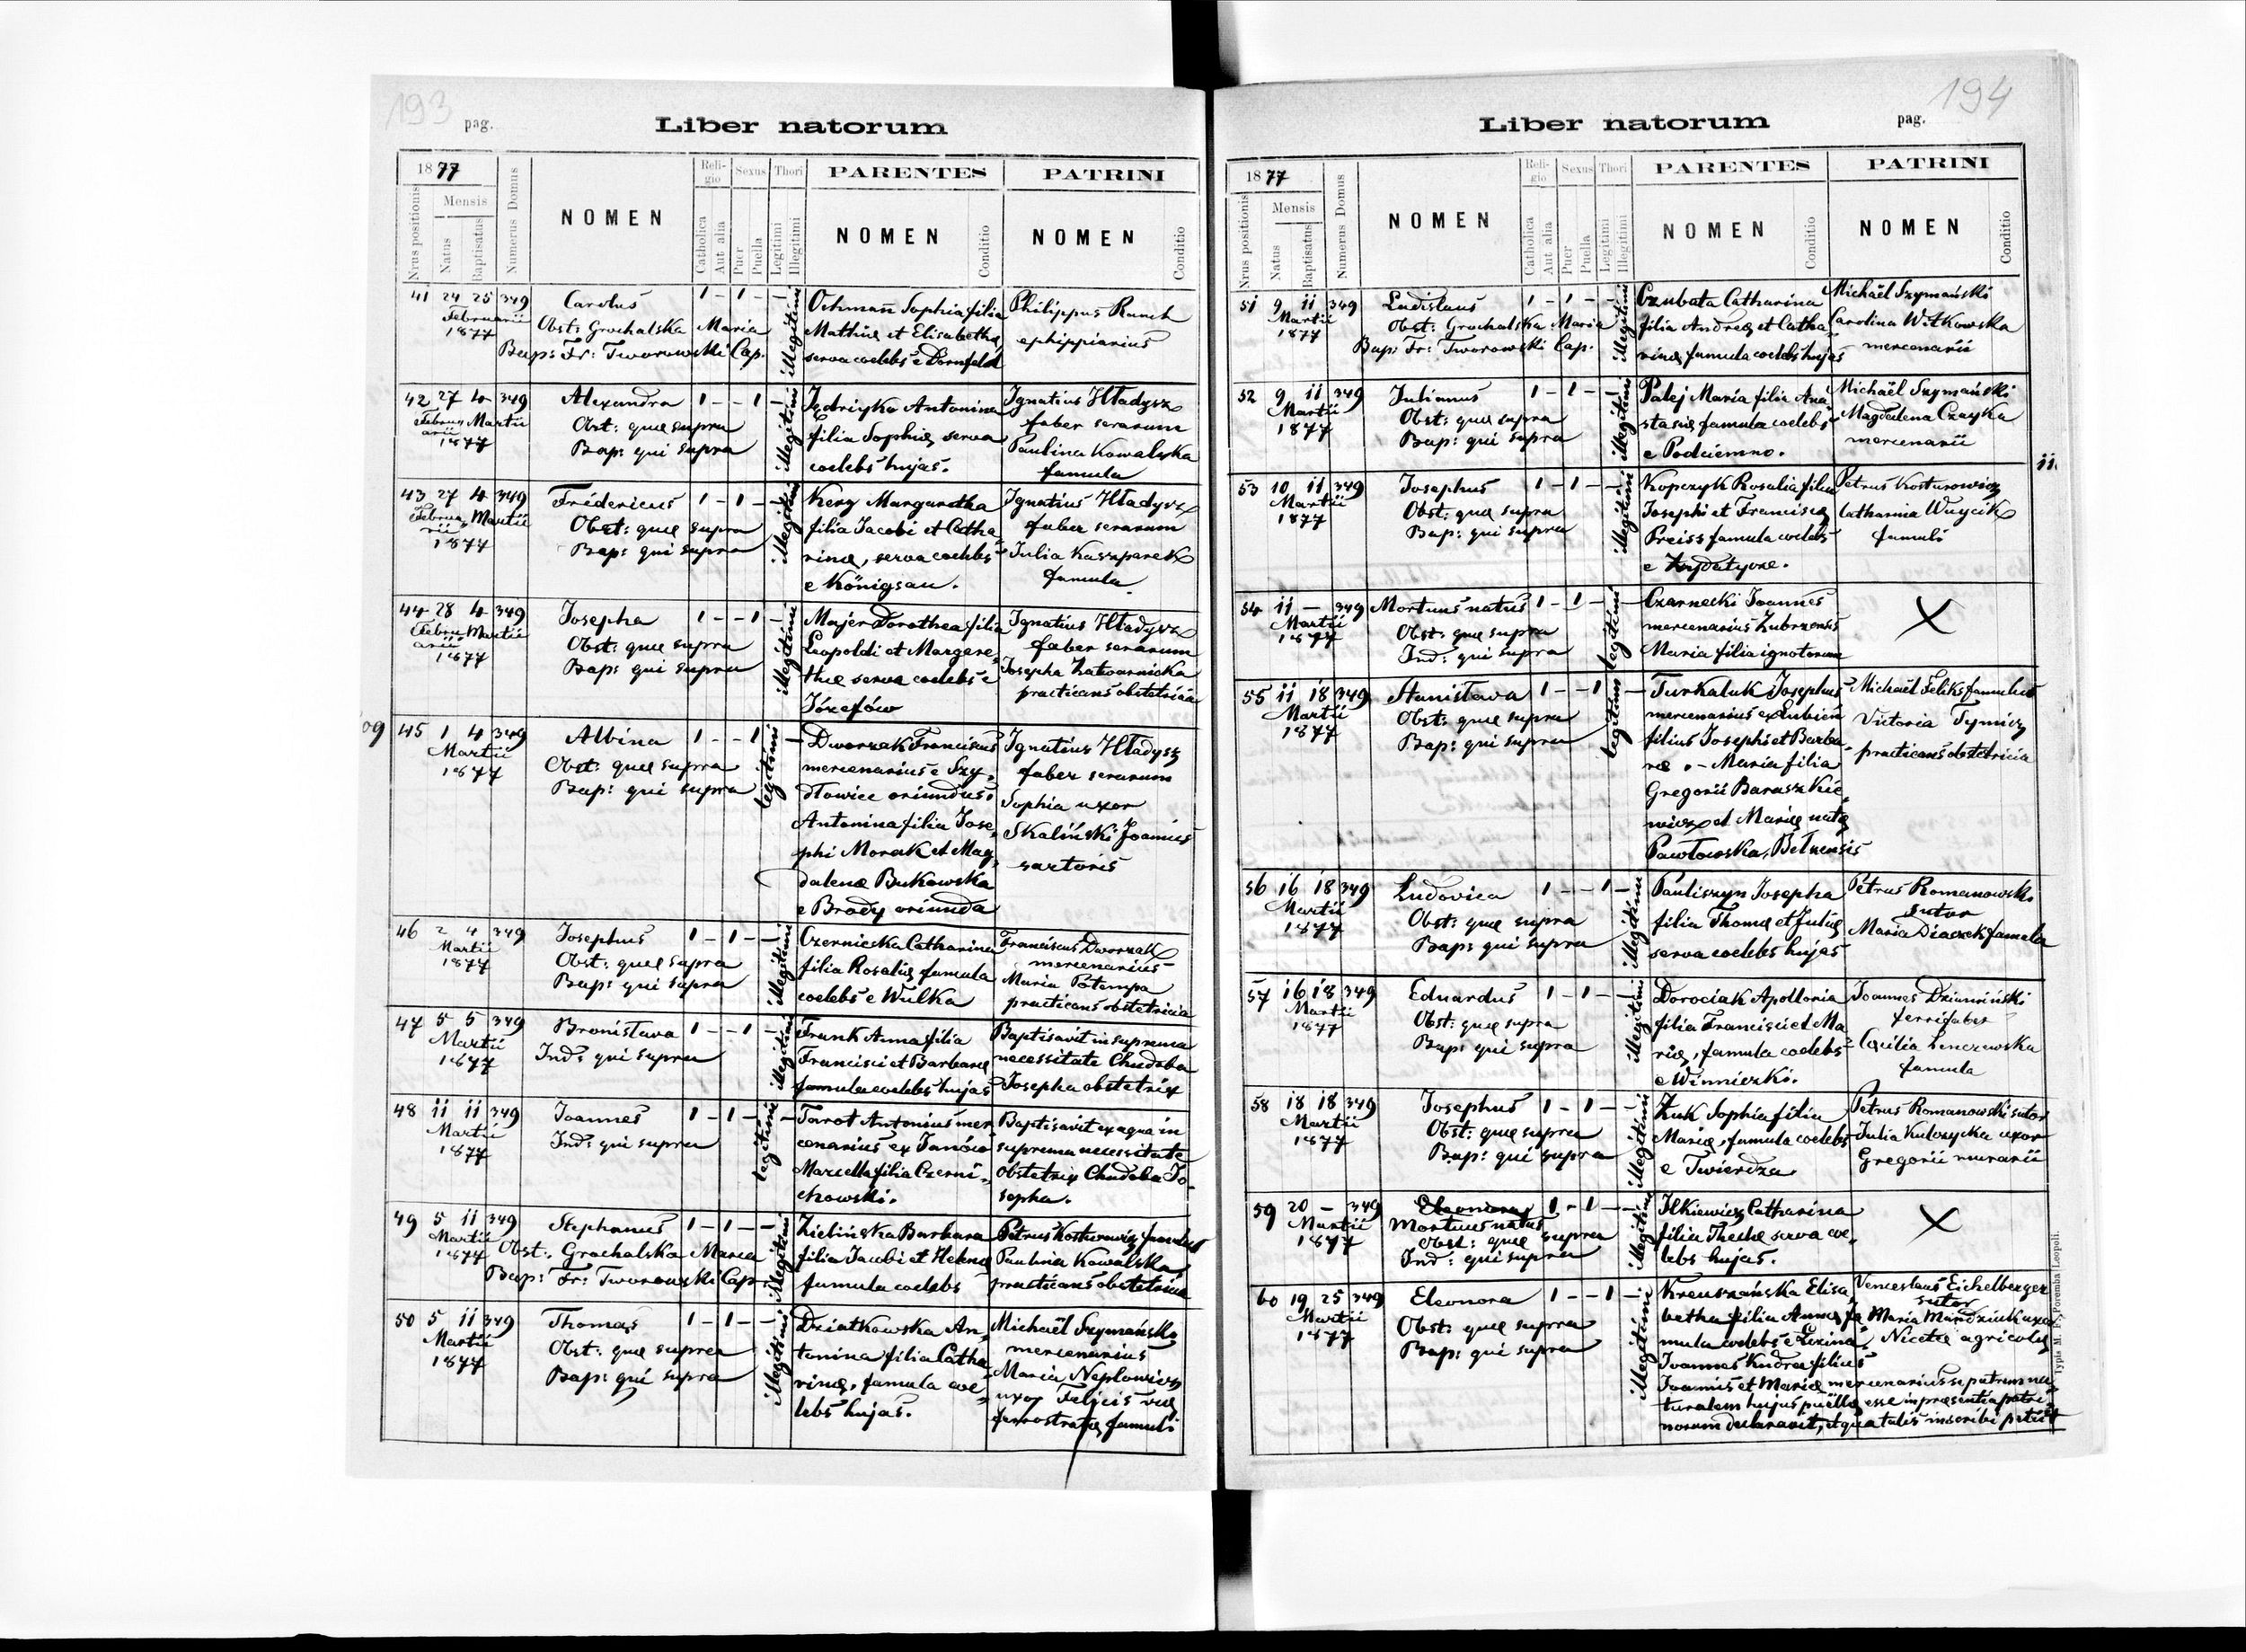 193
pag.
Liber natorum
1877
Mensis
Nrus positionis
Natus
Baptisatus
Numerus Domus
NOMEN
Religio
Catholica
Aut alia
Sexus
Puer
Puella
Thori
Legitimi
Illegitimi
PARENTES
NOMEN
Conditio
PATRINI
NOMEN
Conditio
41 24 25 349 Carolus 1 - 1 - - illegitimi
Februarii
1877
Obst: Grochalska Maria
Bap: Fr: Tworowski Cap.
Ochmann Sophia filia
Mathiæ et Elisabethæ
serva coelebs e Dornfeld
Philippus Rauch
ephippiarius
42 27 4 349 Alexandra 1 - - 1 - illegitimi
Februarii Martii
1877
Obst: quæ supra
Bap: qui supra
Antonina
filia Sophiæ serva
coelebs hujas.
Ignatius Hładysz
faber serarum
Paulina Kowalska
famula
43 27 4 349 Fridericus 1 - 1 - - illegitimi
Martii
1877
Obst: quæ supra
Bap: qui supra
Kerz Margaretha
filia Jacobi et Catha
rinæ, serva coelebs
e Königsau.
Ignatius Hładysz
faber serarum
Julia Kasparek
famula
44 28 4 349 Josepha 1 - - 1 - illegitimi
Februarii Martii
1877
Obst: quæ supra
Bap: qui supra
Majer Dorothea filia
Leopoldi et Margare
thæ serva coelebs e
Józefów
Ignatius Hładysz
faber serarum
Josepha
practicans obstetricia
09
45 1 4 349 Albina 1 - - 1 - legitimi
Martii
1877
Obst: quæ supra
Bap: qui supra
Dworzak Franciscus
mercenarius e Szy
dłowice oriundus.
Antonina filia Jose
phi Morak et Mag
dalenæ Bukowska
e Brody oriunda
Ignatius Hładysz
faber serarum
Sophia uxor
Skaliński Joannis
sartoris
46 2 4 349 Josephus 1 - 1 - - illegitimi
Martii
1877
Obst: quæ supra
Bap: qui supra
Czerniecka Catharina
filia Rosaliæ famula
coelebs e Wulka
Franciscus Dworzak
mercenarius
Maria Potempa
practicans obstetricia
47 5 5 349 Bronislava 1 - - 1 - illegitimi
Martii
1877
Ind: qui supra
Frank Anna filia
Francisci et Barbaræ
famula coelebs hujas
Baptisavit in suprema
necessitate Chudoba
Josepha obstetrix
48 11 11 349 Joannes 1 - 1 - - legitimi
Martii
1877
Ind: qui supra
Tarot Antonius mer
cenarius ex Janów
Marcella filia Czerni
chowski.
Baptisavit ex aqua in
suprema necessitate
obstetrix Chudoba Jo
sepha.
49 5 11 349 Stephanus 1 - 1 - - illegitimi
Martii
1877
Obst: Grochalska Maria
Bap: Fr: Tworowski Cap.
Zielińska Barbara
filia Jacobi et Helenæ
famula coelebs
Petrus Kosturowicz famulus
Paulina Kowalska
practicans obstetricia
50 5 11 349 Thomas 1 - 1 - - illegitimi
Martii
1877
Obst: quæ supra
Bap: qui supra
Dziatkowska An
tonina filia Catha
rinæ, famula coe
lebs hujas.
Michaël Szymański
mercenarius
Maria Neplowicz
uxor Felicis viæ
ferrostratæ famuli
194
Liber natorum
pag.
1877
Mensis
Nrus positionis
Natus
Baptisatus
Numerus Domus
NOMEN
Religio
Catholica
Aut alia
Sexus
Puer
Puella
Thori
Legitimi
Illegitimi
PARENTES
NOMEN
Conditio
PATRINI
NOMEN
Conditio
51 9 11 349 Ladislaus 1 - 1 - - illegitimi
Martii
1877
Obst: Grochalska Maria
Bap: Fr: Tworowski Cap.
Czubata Catharina
filia Andreæ et Catha
rinæ famula coelebs hujas
Michaël Szymański
Carolina Witkowska
mercenarii
52 9 11 349 Julianus 1 - 1 - - illegitimi
Martii
1877
Obst: quæ supra
Bap: qui supra
Palej Maria filia Ana
stasiæ famula coelebs
e Podciemno.
Michaël Szymański
Magdalena Czayka
mercenarii
11
53 10 11 349 Josephus 1 - 1 - - illegitimi
Martii
1877
Obst: quæ supra
Bap: qui supra
Kopczyk Rosalia filia
Josephi et Franciscæ
Preiss famula coelebs
e Zydatycze.
Petrus Kosturowicz
Catharina Wuycik
famuli
54 11 - 349 Mortuus natus 1 - 1 - - legitimi
Martii
1877
Obst: quæ supra
Ind: qui supra
Czarnecki Joannes
mercenarius Zubrzensis
Maria filia ignotorum
X
55 11 18 349 Stanislava 1 - - 1 - legitimi
Martii
1877
Obst: quæ supra
Bap: qui supra
Turkaluk Josephus
mercenarius ex Lubien
filius Josephi et Barba
ræ. - Maria filia
Gregorii Baraszkie
wicz et Mariæ natæ
Pawłowska, Belzensis
Michaël Feliks famulus
Victoria Tymicz
practicans obstetricia
56 16 18 349 Ludovica 1 - - 1 - illegitimi
Martii
1877
Obst: quæ supra
Bap: qui supra
Pauliszyn Josepha
filia Thomæ et Juliæ
serva coelebs hujas
Petrus Romanowski
sutor
Maria Diaczek famula
57 16 18 349 Eduardus 1 - 1 - - illegitimi
Martii
1877
Obst: quæ supra
Bap: qui supra
Dorociak Apollonia
filia Francisci et Ma
riæ, famula coelebs
e Winniczki.
Joannes Dziuminski
ferrifaber
Cæcilia Lenczewska
famula
58 18 18 349 Josephus 1 - 1 - - illegitimi
Martii
1877
Obst: quæ supra
Bap: qui supra
Zuk Sophia filia
Mariæ, famula coelebs
e Twierdza
Petrus Romanowski sutor
Julia Kulczycka uxor
Gregorii murarii
59 20 - 349 Eleonora 1 - 1 - - illegitimi
Martii
1877
Mortuus natus
Obst: quæ supra
Ind: qui supra
Ilkiewicz Catharina
filia Theclæ serva coe
lebs hujas.
X
60 19 25 349 Eleonora 1 - - 1 - illegitimi
Martii
1877
Obst: quæ supra
Bap: qui supra
Kreuszańska Elisa
betha filia Annæ fa
mula coelebs e Lozina
Joannes Kudra filius
Joannis et Mariæ mercenarius se patrem na
turalem hujus puellæ esse in præsentia patri
norum declaravit, et qua talis inscribi petiit
Venceslaus Eichelberger
sutor
Maria Mandziuk uxor
Nicetæ agricolæ
Typis M. F. Poremba Leopoli.